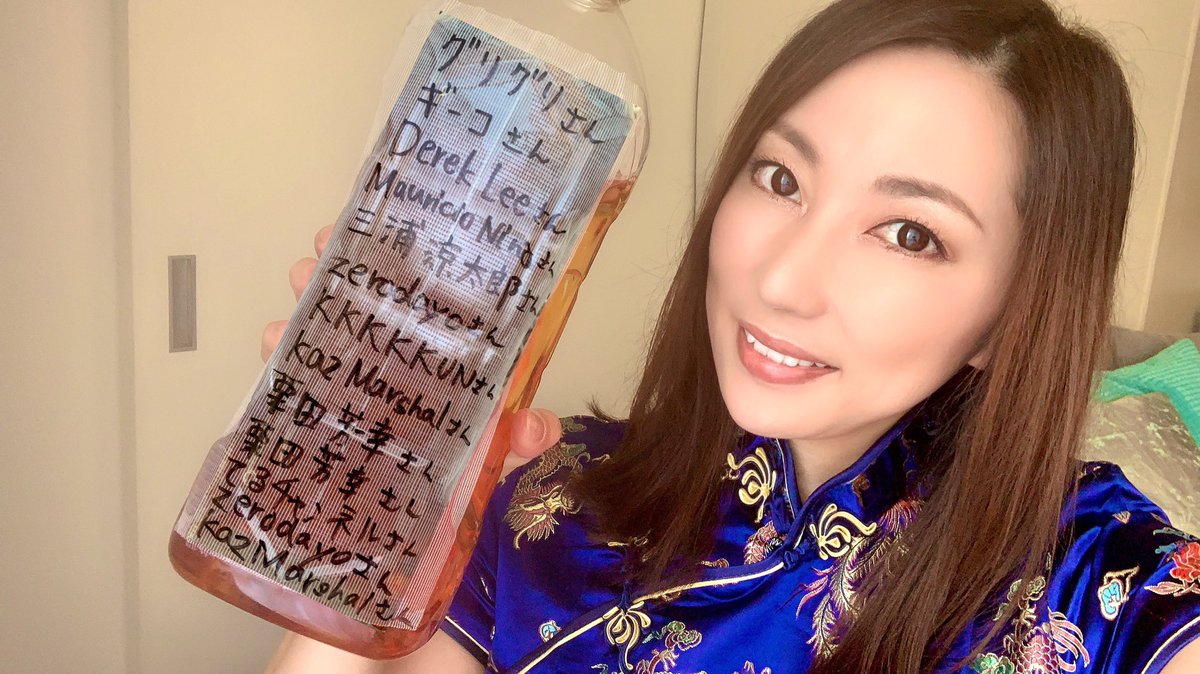 グリグリさん
ギーコさん
Derek Leeさん
Mauricio Ninoさん
三浦涼太郎さん
zerodayoさん
KKKKKUNさん
kaz Marshalさん
栗田芳幸さん
栗田芳幸さん
てるチャンネルさん
zerodayoさん
kaz Marshalさん